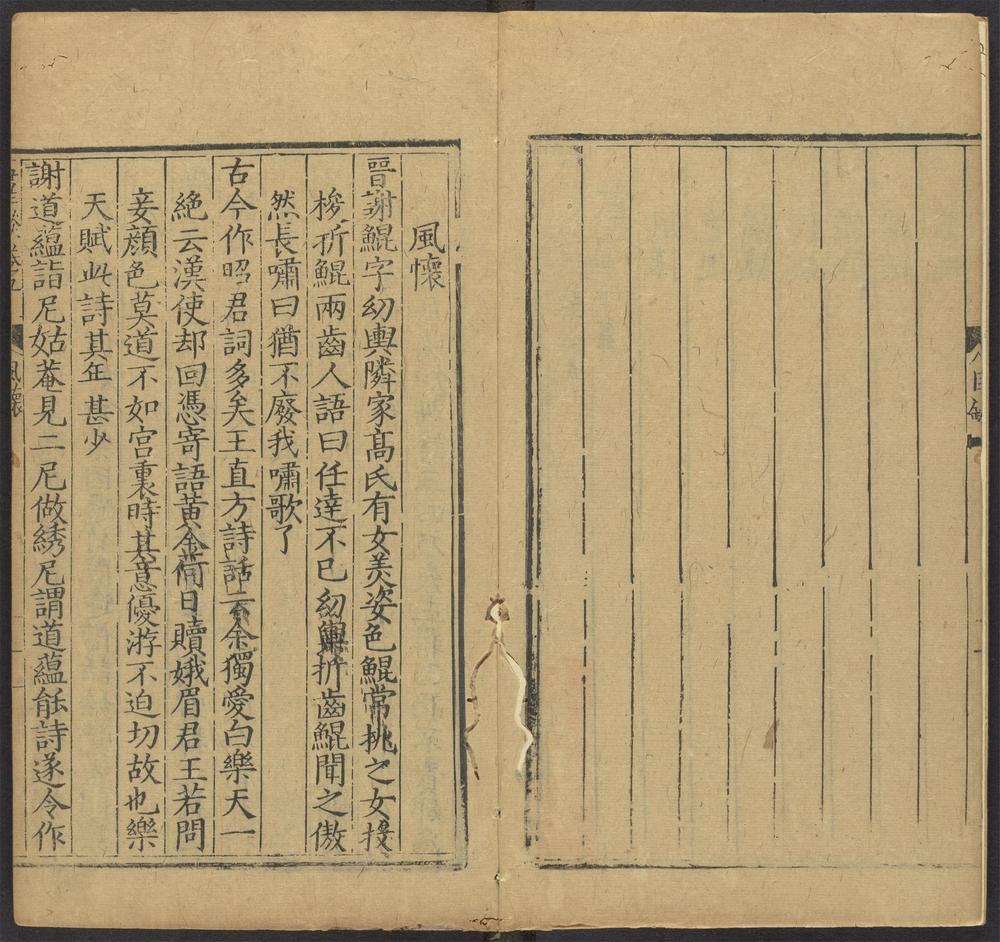 目錄
風懷
晉謝鯤字幼輿隣家髙氏有女美姿色鯤常挑之女投
梭折鯤兩齒人語曰任達不已幼輿折齒鯤聞之傲
然長嘯曰猶不廢我嘯歌了
古今作昭君詞多矣王直方詩話云余獨愛白樂天一
絶云漢使却回憑寄語黄金何日贖娥眉君王若問
妾顔色莫道不如宫裏時其意優游不迫切故也樂
天賦此詩其年甚少
謝道藴詣尼姑菴見二尼做綉尼謂道藴能詩遂令作
風懷